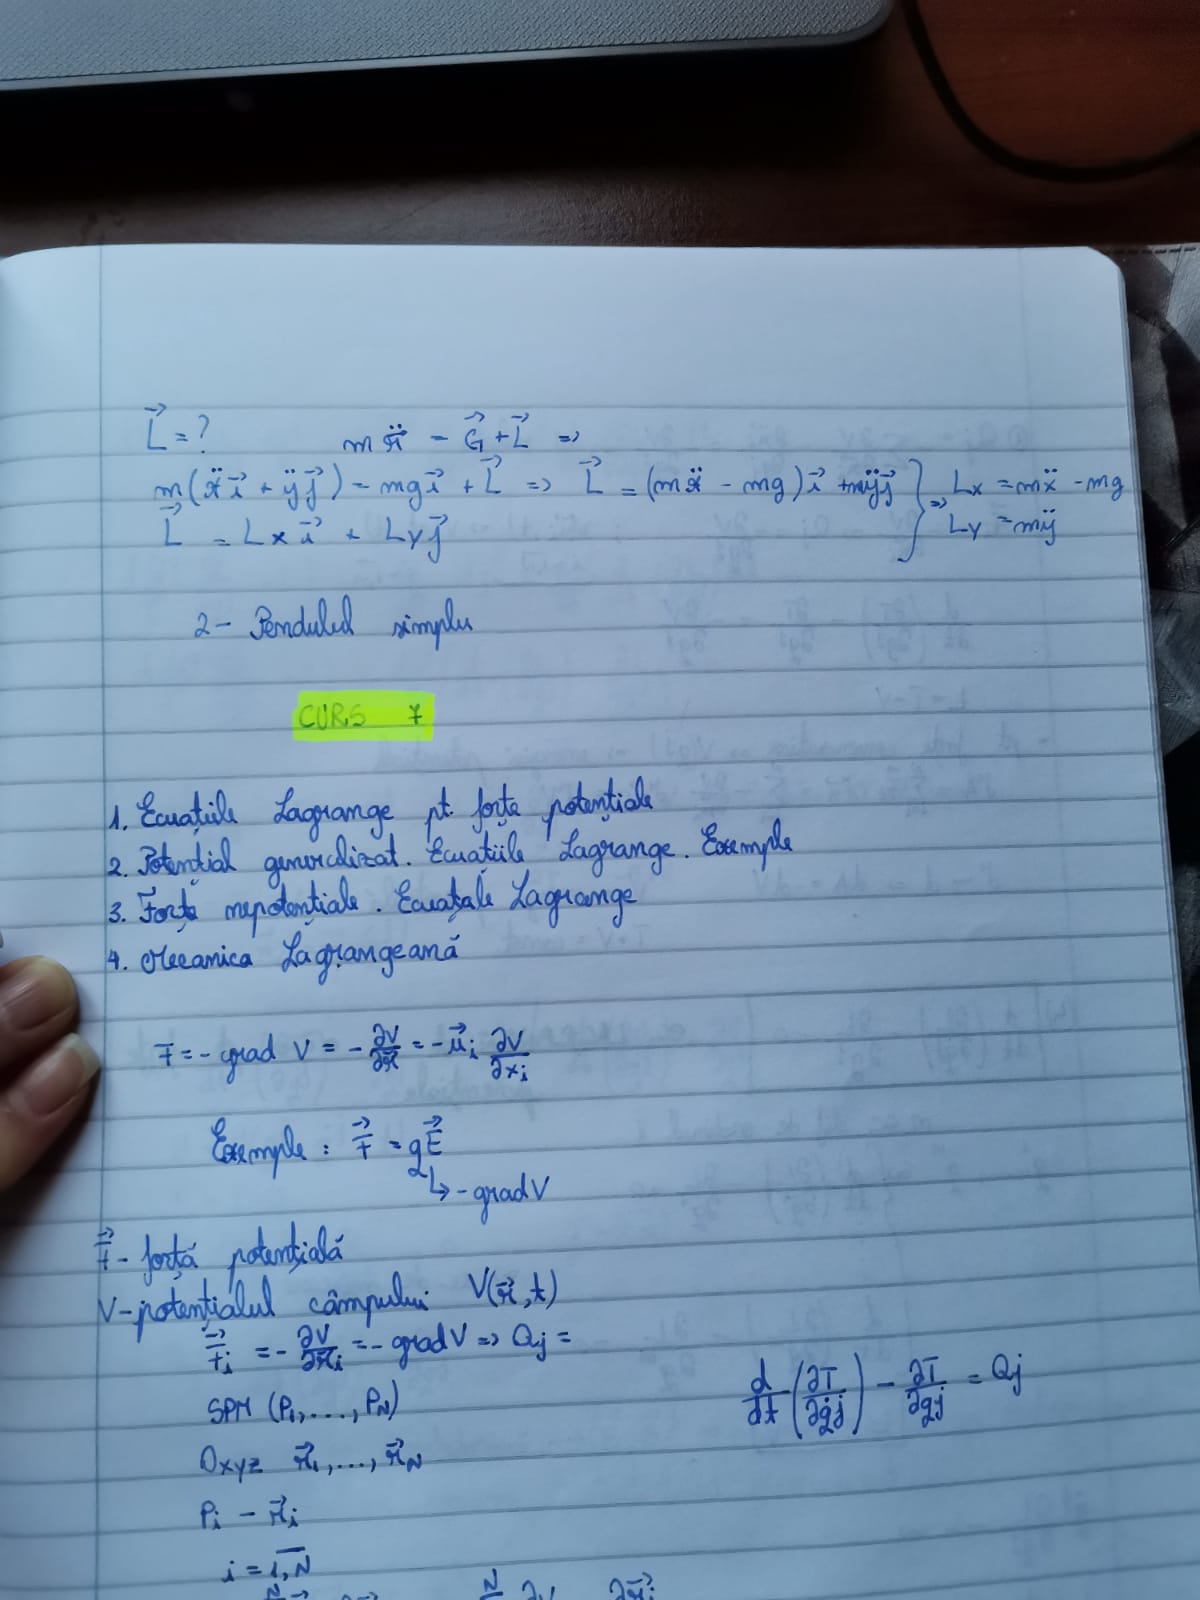 L⃗ = ? m r̈⃗ = G⃗ + L⃗ =>
m(ẍ i⃗ + ÿ j⃗) = mg i⃗ + L⃗ => L⃗ = (mẍ - mg) i⃗ + mÿ j⃗ } => Lx = mẍ - mg
L⃗ = Lx i⃗ + Ly j⃗ Ly = mÿ
2 - Pendulul simplu
CURS 7
1. Ecuațiile Lagrange pt. forțe potențiale
2. Potențial generalizat. Ecuațiile Lagrange. Exemple
3. Forțe nepotențiale. Ecuațiile Lagrange
4. Mecanica Lagrangeană
F = - grad V = - ∂V/∂r⃗ = - u⃗i ∂V/∂xi
Exemple: F⃗ = qE⃗
↳ - grad V
F⃗ - forță potențială
V - potențialul câmpului V(r⃗, t)
F⃗i = - ∂V/∂r⃗i = - grad V => Qj =
SPM (P1, ..., PN) d/dt (∂T/∂q̇j) - ∂T/∂qj = Qj
Oxyz r⃗1, ..., r⃗N
Pi - r⃗i
i = 1,N